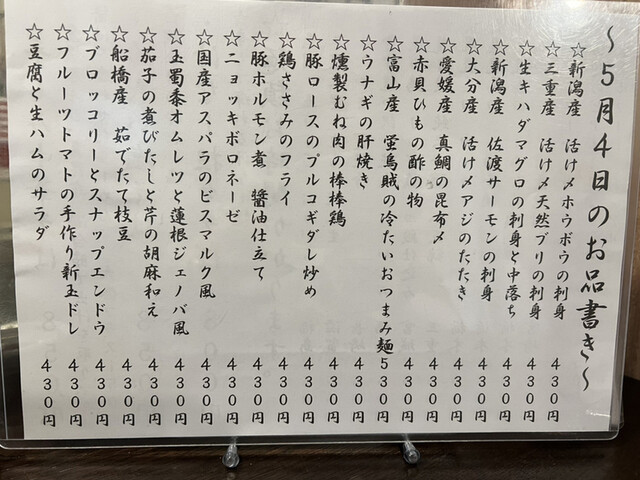 ～５月４日のお品書き～
☆新潟産　活け〆ホウボウの刺身　４３０円
☆三重産　活け〆天然ブリの刺身　４３０円
☆生キハダマグロの刺身と中落ち　４３０円
☆新潟産　佐渡サーモンの刺身　４３０円
☆大分産　活け〆アジのたたき　４３０円
☆愛媛産　真鯛の昆布〆　４３０円
☆赤貝ひもの酢の物　４３０円
☆富山産　蛍烏賊の冷たいおつまみ麺　５３０円
☆ウナギの肝焼き　４３０円
☆燻製むね肉の棒棒鶏　４３０円
☆豚ロースのプルコギダレ炒め　４３０円
☆鶏ささみのフライ　４３０円
☆豚ホルモン煮　醤油仕立て　４３０円
☆ニョッキボロネーゼ　４３０円
☆国産アスパラのビスマルク風　４３０円
☆玉蜀黍オムレツと蓮根ジェノバ風　４３０円
☆茄子の煮びたしと芹の胡麻和え　４３０円
☆船橋産　茹でたて枝豆　４３０円
☆ブロッコリーとスナップエンドウ　４３０円
☆フルーツトマトの手作り新玉ドレ　４３０円
☆豆腐と生ハムのサラダ　４３０円